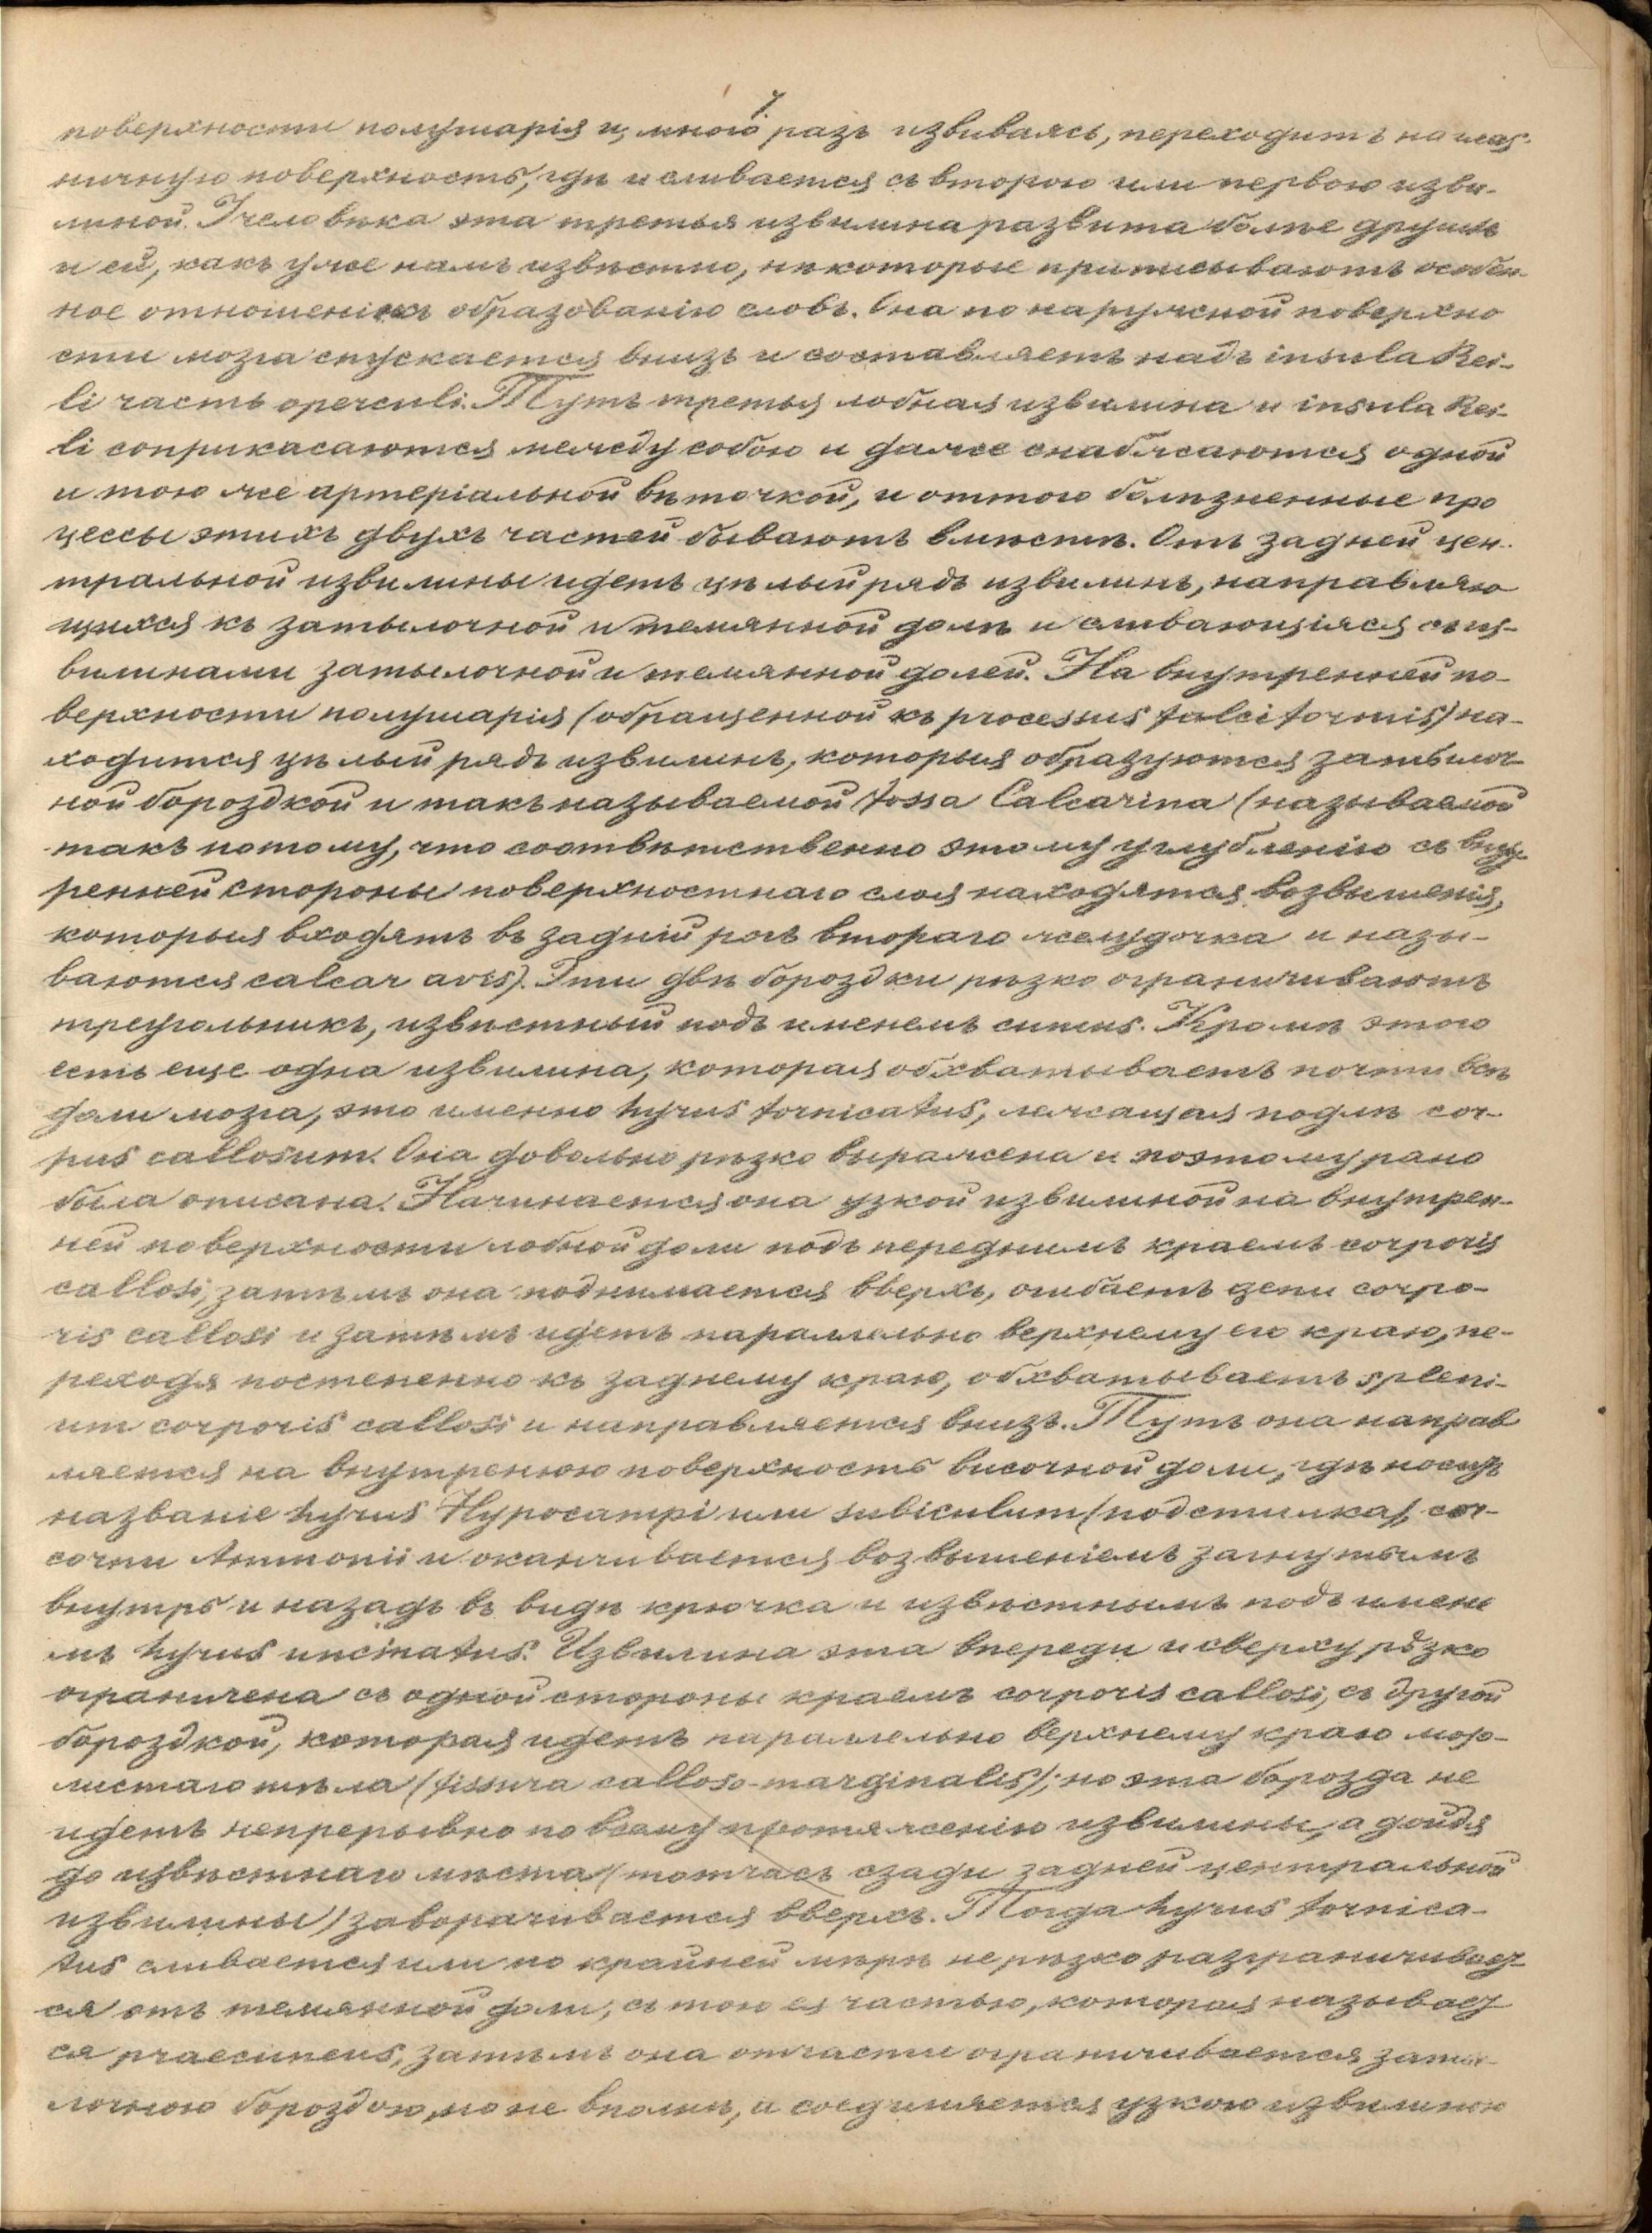 7.
поверхности полушарія и, много разъ извиваясь, переходитъ на глаз-
ничную поверхность, гдѣ и сливается съ второю или первою изви-
линой. У человѣка эта третья извилина развита болѣе другихъ
и ей, какъ уже намъ извѣстно, нѣкоторые приписываютъ особен
ное отношеніе къ образованію словъ. Она по наружной поверхно
сти мозга спускается внизъ и составляетъ надъ insula Rei-
li часть operculi. Тутъ третья лобная извилина и insula Rei-
li соприкасаются между собою и даже снабжаются одной
и тою же артеріальной вѣточкой, и оттого болѣзненные про
цессы этихъ двухъ частей бываютъ вмѣстѣ. Отъ задней цен-
тральной извилины идетъ цѣлый рядъ извилинъ, направляю
щихся къ затылочной и темянной долѣ и сливающіяся съ из-
вилинами затылочной и темянной долей. На внутренней по-
верхности полушарія (обращенной къ processus falciformis) на-
ходится цѣлый рядъ извилинъ, которыя образуются затылоч
ной бороздкой и такъ называемой fossa Calcarina (называемой
такъ потому, что соотвѣтственно этому углубленію съ внут
ренней стороны поверхностнаго слоя находятся возвышенія,
которыя входятъ въ задній рогъ второго желудочка и назы-
ваются calcar avis). Эти двѣ бороздки рѣзко ограничиваютъ
треугольникъ, извѣстный подъ именемъ cuneus. Кромѣ этого
есть еще одна извилина, которая обхватываетъ почти всѣ
доли мозга, это именно hyrus fornicatus, лежащая подлѣ cor-
pus callosum. Она довольно рѣзко выражена и поэтому рано
была описана. Начинается она узкой извилиной на внутрен-
ней поверхности лобной доли подъ переднимъ краемъ corporis
callosi, затѣмъ она поднимается вверхъ, огибаетъ genu corpo-
ris callosi и затѣмъ идетъ параллельно верхнему его краю, пе-
реходя постепенно къ заднему краю, обхватываетъ spleni-
um corporis callosi и направляется внизъ. Тутъ она направ
ляется на внутреннюю поверхность височной доли, гдѣ носитъ
названіе hyrus Hypocampi или subiculum (подстилка) cor-
cornu Ammonii и оканчивается возвышеніемъ загнутымъ
внутрь и назадъ въ видѣ крючка и извѣстнымъ подъ имене
мъ hyrus uncinatus. Извилина эта впереди и сверху рѣзко
ограничена съ одной стороны краемъ corporis callosi, съ другой
бороздкой, которая идетъ параллельно верхнему краю мозо-
листаго тѣла (fissura calloso-marginalis); но эта борозда не
идетъ непрерывно по всему протяженію извилины, а дойдя
до извѣстнаго мѣста (тотчасъ сзади задней центральной
извилины) заворачивается вверхъ. Тогда hyrus fornica-
tus сливается или по крайней мѣрѣ не рѣзко разграничивает
ся отъ темянной доли, съ тою ея частью, которая называет
ся praecuneus, затѣмъ она отчасти ограничивается заты-
лочною бороздою, но не вполнѣ, а соединяется узкою извилиною